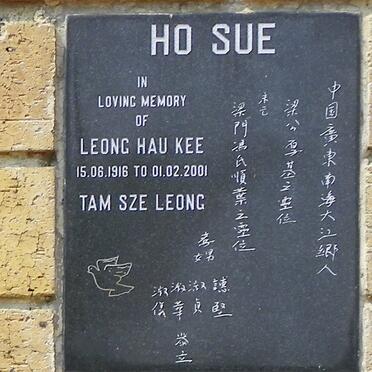 HO SUE
IN
LOVING MEMORY
OF
LEONG HAU KEE
15.06.1916 TO 01.02.2001
TAM SZE LEONG
中国廣東南海大江鄉人
梁公厚基之灵位
未亡
梁門馮氏順葉之灵位
孝男
女
謙堅
淑貞
淑華
淑儀
恭立